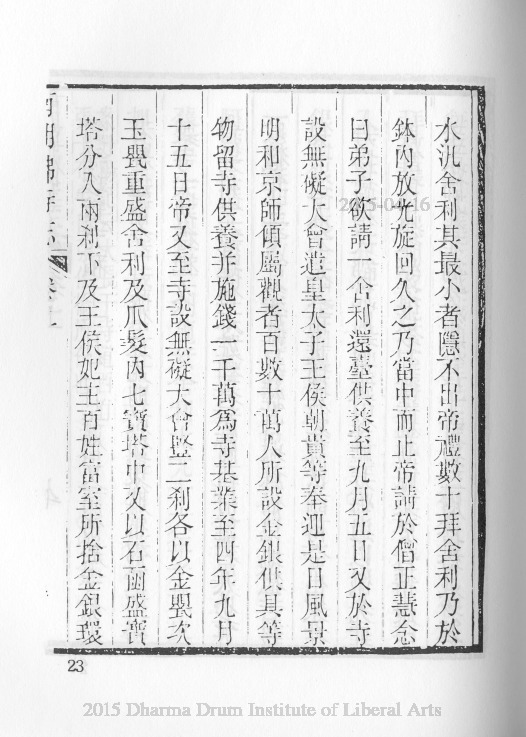 水汎舍利其最小者隱不出帝禮數十拜舍利乃於
鉢內放光旋回久之乃當中而止帝請於僧正慧念
曰弟子欲請一舍利還臺供養至九月五日又於寺
設無礙大會遣皇太子王侯朝貴等奉迎是日風景
明和京師傾屬觀者百數十萬人所設金銀供具等
物留寺供養并施錢一千萬爲寺基業至四年九月
十五日帝又至寺設無礙大會豎二刹各以金罌次
玉罌重盛舍利及爪髮內七寶塔中又以石函盛寶
塔分入兩刹下及王侯妃主百姓富室所捨金銀環
23
2015 Dharma Drum Institute of Liberal Arts